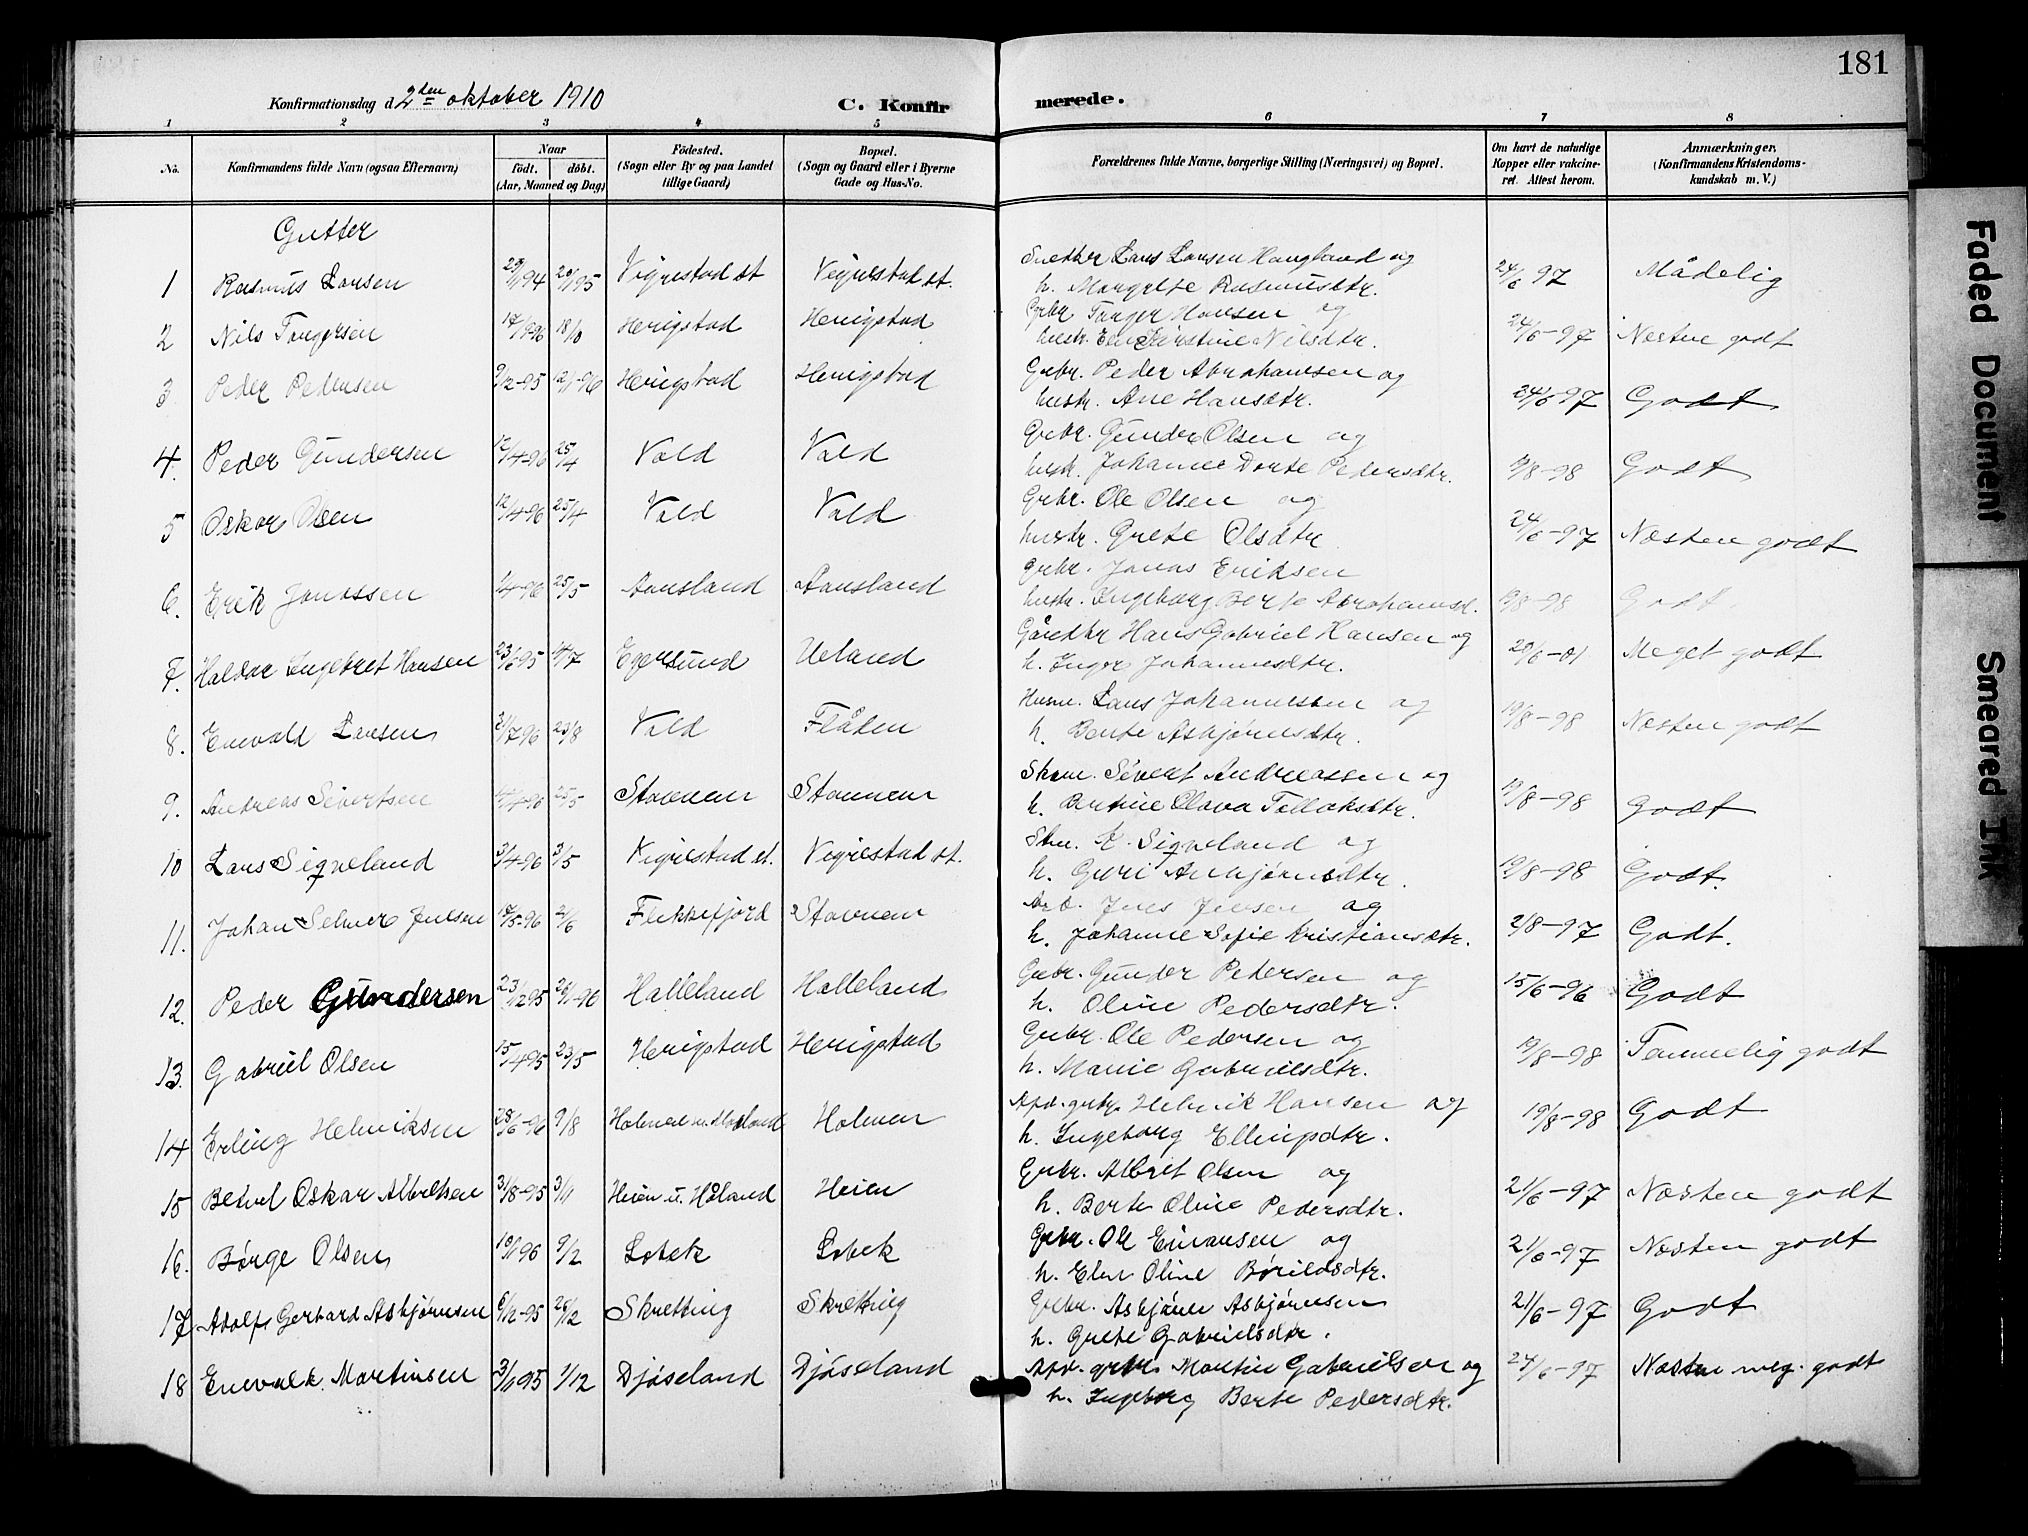 181
Konfirmationsdag d. 2den oktober 1910 C. Konfirmerede.
1 2 3 4 5 6 7 8
No. Konfirmandens fulde Navn (ogsaa Efternavn) Naar født. døbt. (Aar, Maaned og Dag) Fødested. (Sogn eller By og paa Landet tillige Gaard) Bopæl. (Sogn og Gaard eller i Byerne Gade og Hus-No. Forældrenes fulde Navne, borgerlige Stilling (Næringsvei) og Bopæl. Om havt de naturlige Kopper eller vakcineret. Attest herom. Anmærkninger. (Konfirmandens Kristendomskundskab m. V.)
Gutter
1 Rasmus Larsen 20/1 95 Vigrestad st Vigrestad st. Lars Larsen Haugland og h. Margrete Rasmusdtr. 24/6 97 Mådelig
2 Nils Torgersen 18/10 Herigstad Herigstad Grbr Torger Hansen og hustr. Nilsdtr. 24/6-97 Næsten godt
3 Peder Pedersen 9/12-95 12/1-96 Herigstad Herigstad Grbr. Peder Abrahamsen og hustr. Ane Hansdtr. 24/6 97 Godt
4. Peder Gundersen 12/4-96 25/4 Vold Vold Grbr. Gunder Olsen og hustr. Johanne Dorte Pedersdtr. /8-98 Godt
5 Oskar Olsen 12/4-96 25/4 Vold Vold Grbr. Ole Olsen og hustr. Grete Olsdtr 24/6-97 Næsten godt
6. Erik Jonassen 25/5 Aarsland Aarsland Grbr. Jonas Eriksen hustr. Ingeborg Berte Abrahamsd. 19/8-98 Godt
7. Haldor Ingebret Hansen 23/ 95 Egersund Ueland Hans Gabriel Hansen og h. Inger Johannesdtr. 20/6-01 Meget godt
8. Enevald Larsen /7 96 23/8 Vold Flåten Husm. Lars Johannessen og h. Berte Asbjørnsdtr. 19/8-98 Næsten godt
9. Andreas Sivertsen 25/5 Stavnem Stavnem Skom. Sivert Andreassen og h. Bertine Olava Tollaksdtr. 19/8-98 Godt
10 Lars Sigveland 3/4-96 3/5 Vigrestad st. Vigrestad st. Stm. Sigveland og h. Guri Asbjørnsdtr. 19/8-98 Godt.
11. Johan Selmer Jensen 17/5-96 2/6 Flekkefjord Stavnem Arb. Jens Jensen og h. Johanne Sofie Kristiansdtr. 2/8-97 Godt.
12. Peder Gundersen 23/12 95 26/1-96 Halleland Halleland Grbr. Gunder Pedersen og h. Oline Pedersdtr. 15/6-96 Godt
13. Gabriel Olsen 15/4 95 23/5 Herigstad Herigstad Grbr. Ole Pedersen og h. Marie Gabrielsdtr. 19/8-98 Temmelig godt
14 Erling Helmiksen 28/6-96 9/8 Holmen Holmen grbr. Helmik Hansen og h. Ingeborg Ellingsdtr. 19/8-98 Godt
15 Betuel Oskar Albretsen 31/8-95 3/11 Heien u. Håland Heien Grbr. Albret Olsen og h. Berte Oline Pedersdtr. 21/6-97 Næsten godt
16. Børge Olsen 10/1 96 9/2 Lobek Lobek Grbr. Ole Einarsen og h. Elen Oline Børildsdtr. 21/6-97 Næsten godt
17 Adolf Gerhard Asbjørnsen 6/12-95 26/12 Skretting Skretting Grbr. Asbjørn Asbjørnsen h. Grete Gabrielsdtr. 21/6-97 Godt
18 Enevald Martinsen 3/11 95 1/12 Djøseland Djøseland grbr. Martin Gabrielsen og h. Ingeborg Berte Pedersdtr. 24/6-97 Næsten meg. godt
Faded Document
Smeared Ink